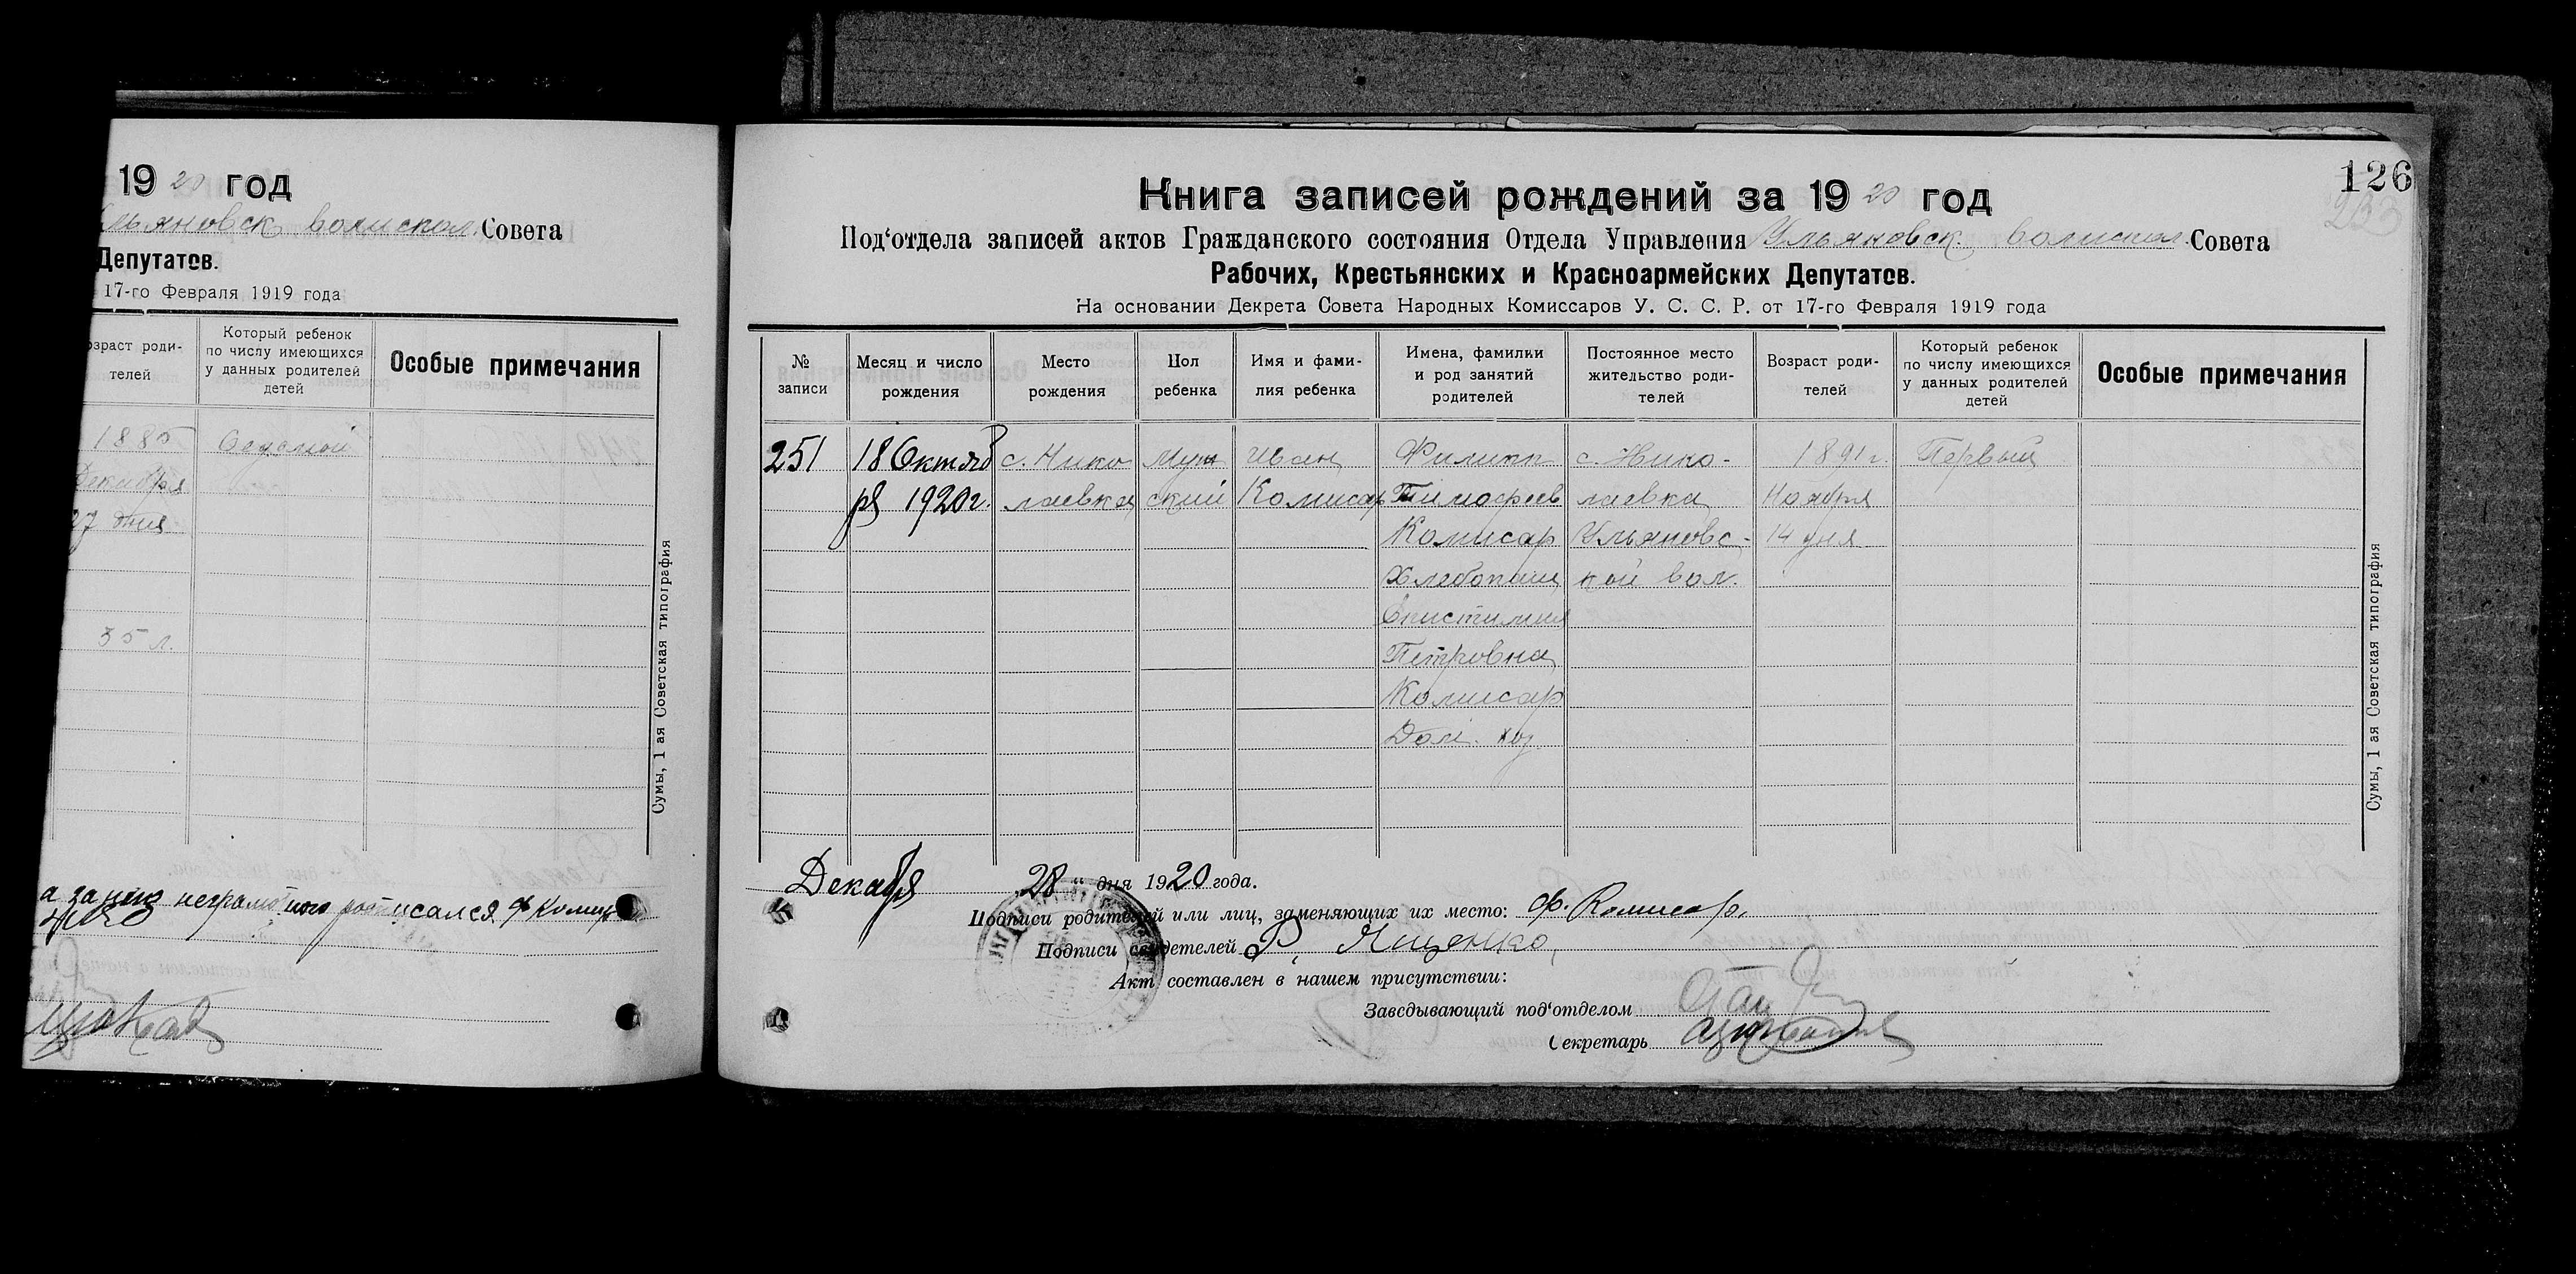 1920 год
льяновск волискол. Совета
Депутатов.
17-го Февраля 1919 года
озраст роди-
телей
Который ребенок
по числу имеющихся
у данных родителей
детей
Особые примечания
1885
Декабря
27 дня
35 л.
неграмотного росписался Ф Комис
Сумы, 1 ая Советская типография
126
Книга записей рождений за 1920 год
Под‘отдела записей актов Гражданского состояния Отдела Управления Ульяновск. Совета
Рабочих, Крестьянских и Красноармейских Депутатов.
На основании Декрета Совета Народных Комиссаров У. С. С. Р. от 17-го Февраля 1919 года
№
записи
Месяц и число
рождения
Место
рождения
Пол
ребенка
Имя и фами-
лия ребенка
Имена, фамилии
и род занятий
родителей
Постоянное место
жительство роди-
телей
Возраст роди-
телей
Который ребенок
по числу имеющихся
у данных родителей
детей
Особые примечания
251
18 Октяб
ря 1920 г.
с. Нико
лаевка
Муж
ский
Иван
Комисар
Филипп
Тимофеев
Комисар
Хлебопаш
Петровна
Комисар
Дом. хоз
с. Нико-
лаевка
Ульяновс-
кой вол.
1891 г.
Ноября
14 дня
Первый
Декабря 28 “ дня 1920 года.
Подписи родителей или лиц, заменяющих их место: Ф. Комисар.
Подписи свидетелей Ященко,
Акт составлен в нашем присутствии:
Заведывающий под‘отделом
Секретарь
Сумы, 1 ая Советская типография